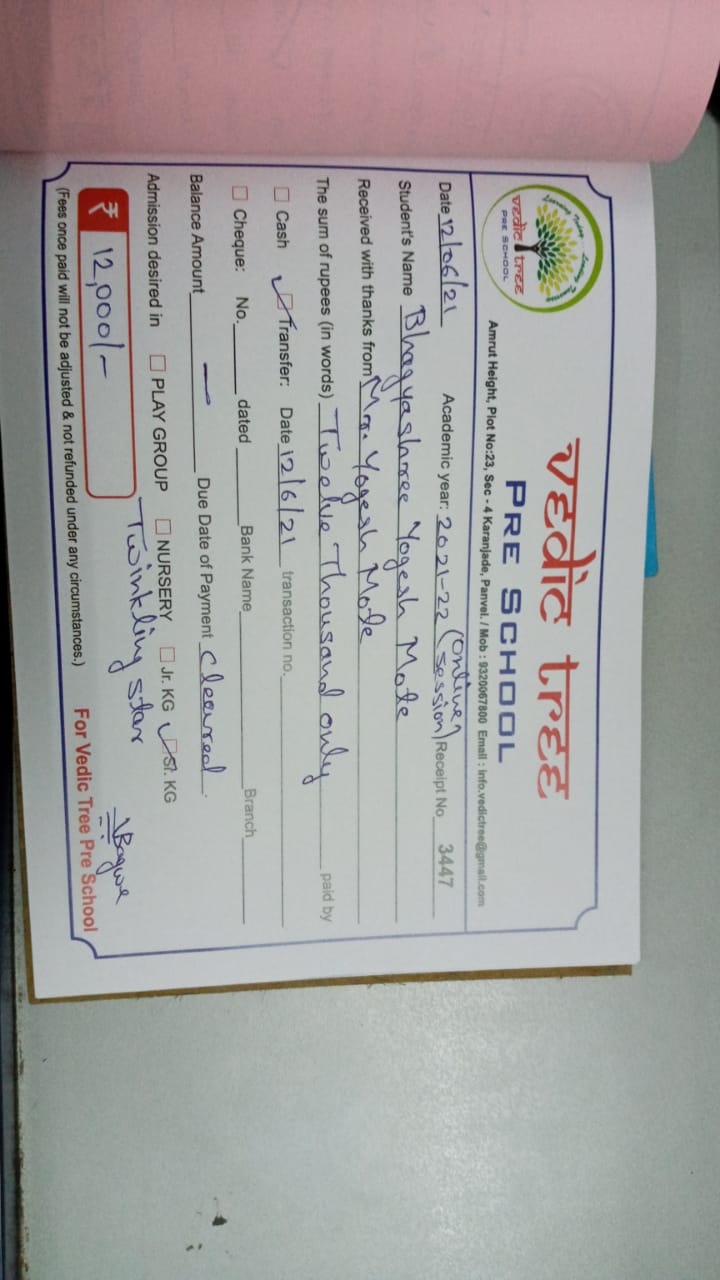 Learning Today - Leading Tomorrow
vedic tree
PRE SCHOOL
vedic tree
PRE SCHOOL
Amrut Height, Plot No:23, Sec - 4 Karanjade, Panvel. / Mob : 9320067800 Email : info.vedictree@gmail.com
Date 12/06/21 Academic year: 2021-22 (online session) Receipt No 3447
Student's Name Bhagyashree Yogesh Mote
Received with thanks from Mr. Yogesh Mote
The sum of rupees (in words) Twelve Thousand only paid by
Cash Transfer: Date 12/6/21 transaction no.
Cheque: No. dated Bank Name Branch
Balance Amount — Due Date of Payment Cleared.
Admission desired in PLAY GROUP NURSERY Jr. KG Sr. KG
Twinkling star
₹ 12,000/-
For Vedic Tree Pre School
(Fees once paid will not be adjusted & not refunded under any circumstances.)